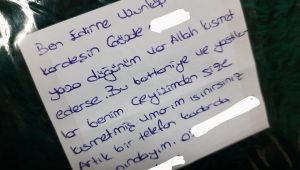 Ben Edirne Uzunköp
kardeşin Gözde
yaza düğünüm var Allah kısmet
ederse. Bu battaniye ve yastık
lar benim çeyizimden size
kısmetmiş umarım ısınırsınız
Artık bir telefon kadarda
nındayım. 0